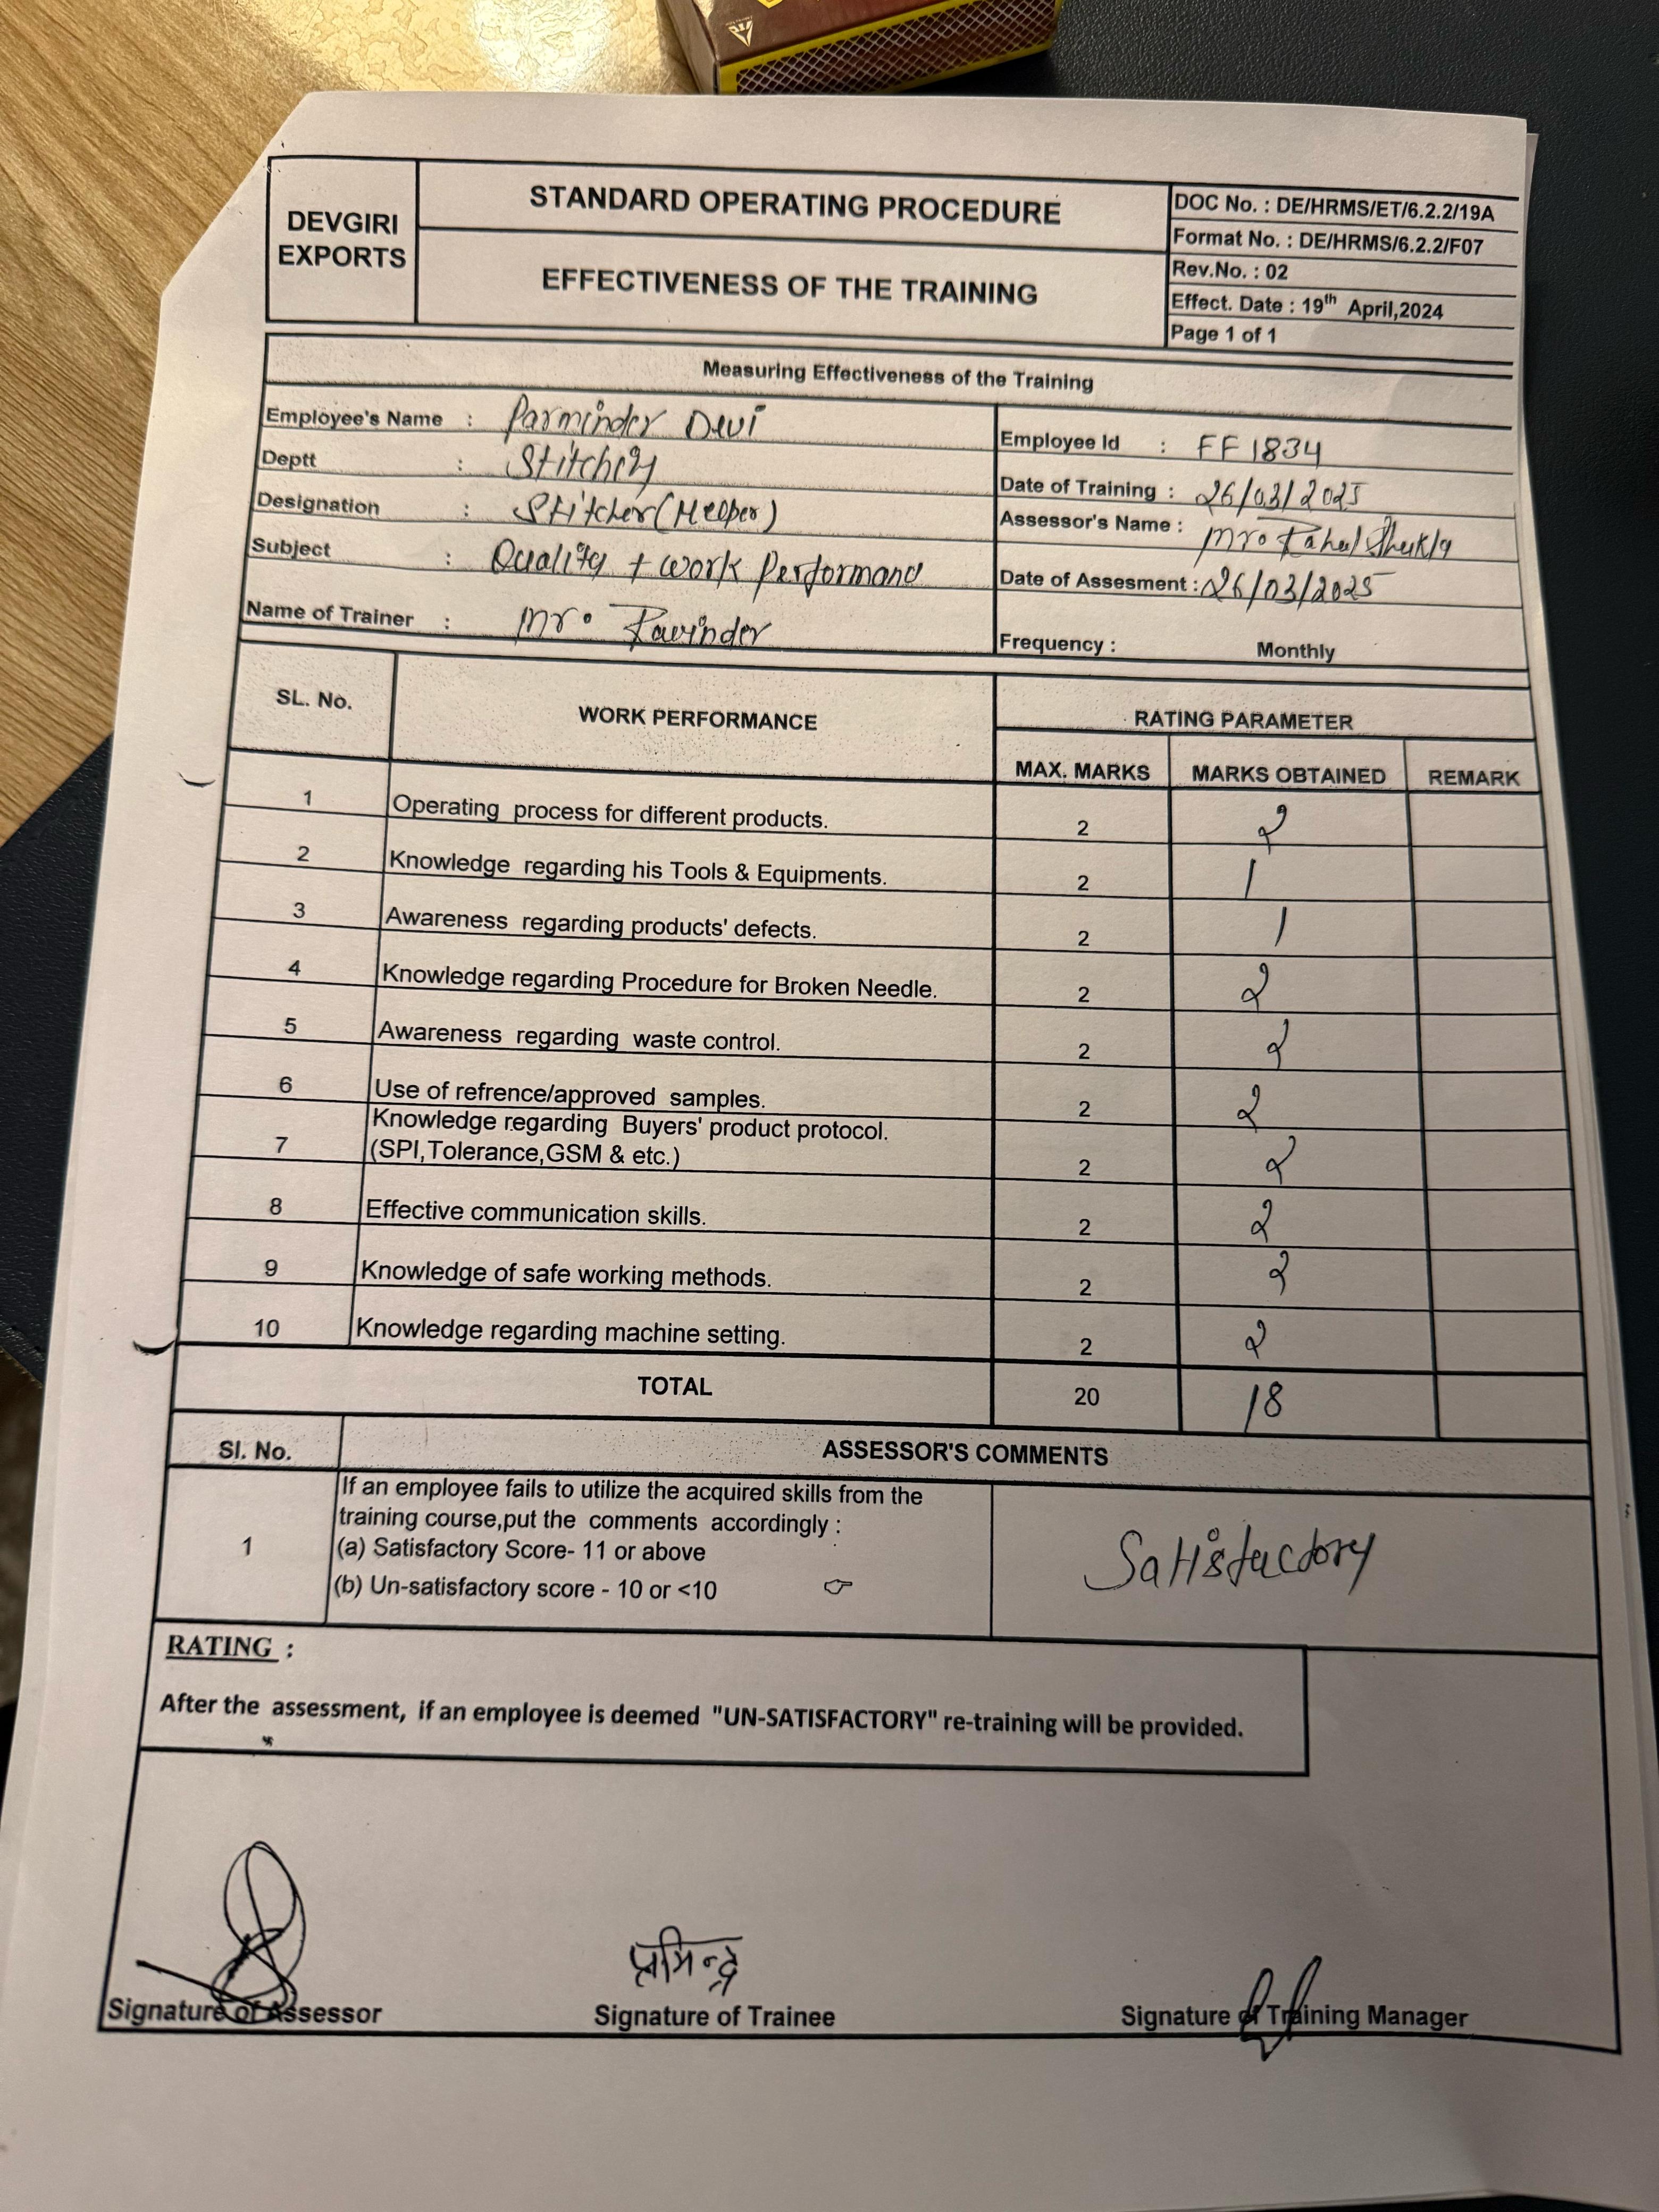 DEVGIRI EXPORTS
STANDARD OPERATING PROCEDURE
EFFECTIVENESS OF THE TRAINING
DOC No. : DE/HRMS/ET/6.2.2/19A
Format No. : DE/HRMS/6.2.2/F07
Rev.No. : 02
Effect. Date : 19th April,2024
Page 1 of 1
Measuring Effectiveness of the Training
Employee's Name : Parminder Devi
Employee Id : FF1834
Deptt : Stitching
Date of Training : 26/03/2025
Designation : Stitcher(Helper)
Assessor's Name : Mr. Rahul Shukla
Subject : Quality + work Performance
Date of Assesment : 26/03/2025
Name of Trainer : Mr. Ravinder
Frequency : Monthly
SL. No. WORK PERFORMANCE RATING PARAMETER
MAX. MARKS MARKS OBTAINED REMARK
1 Operating process for different products. 2 2
2 Knowledge regarding his Tools & Equipments. 2 1
3 Awareness regarding products' defects. 2 1
4 Knowledge regarding Procedure for Broken Needle. 2 2
5 Awareness regarding waste control. 2 2
6 Use of refrence/approved samples. 2 2
7 Knowledge regarding Buyers' product protocol.
(SPI,Tolerance,GSM & etc.) 2 2
8 Effective communication skills. 2 2
9 Knowledge of safe working methods. 2 2
10 Knowledge regarding machine setting. 2 2
TOTAL 20 18
SI. No. ASSESSOR'S COMMENTS
1 If an employee fails to utilize the acquired skills from the
training course,put the comments accordingly :
(a) Satisfactory Score- 11 or above
(b) Un-satisfactory score - 10 or <10
Satisfactory
RATING :
After the assessment, if an employee is deemed "UN-SATISFACTORY" re-training will be provided.
प्रमिन्द्र
Signature of Assessor Signature of Trainee Signature of Training Manager